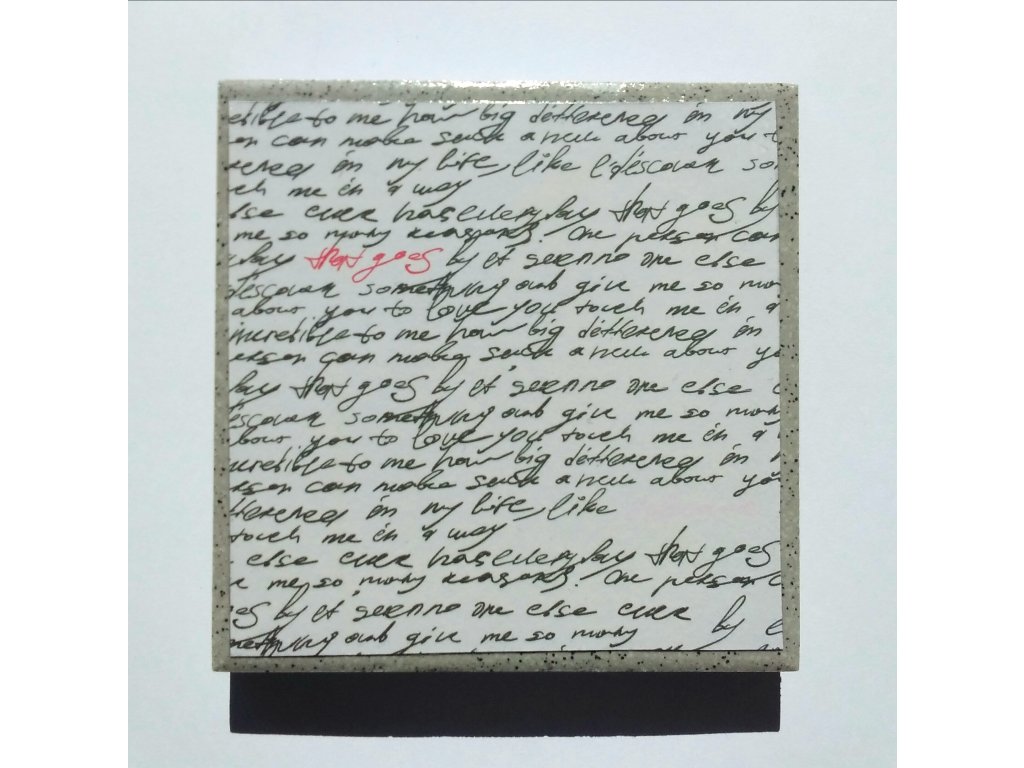 to me how big differenes in my
can make such a about you t
in my life, like I discover so
ch me in a way
lse ever has every day that goes by
me so many reasons. One person can
day that goes by it seen no one else
discover something and give me so mor
about you to love you touch me in a
to me how big differenes in
erson can make such a about yo
day that goes by it seen no one else
scover something and give me so many
about you to love you touch me in a
to me how big differenes in
rson can make such a about yo
in my life, like
touch me in a way
else ever has every day that goes
me so many reasons. One person c
es by it seen no one else ever by
mething and give me so many